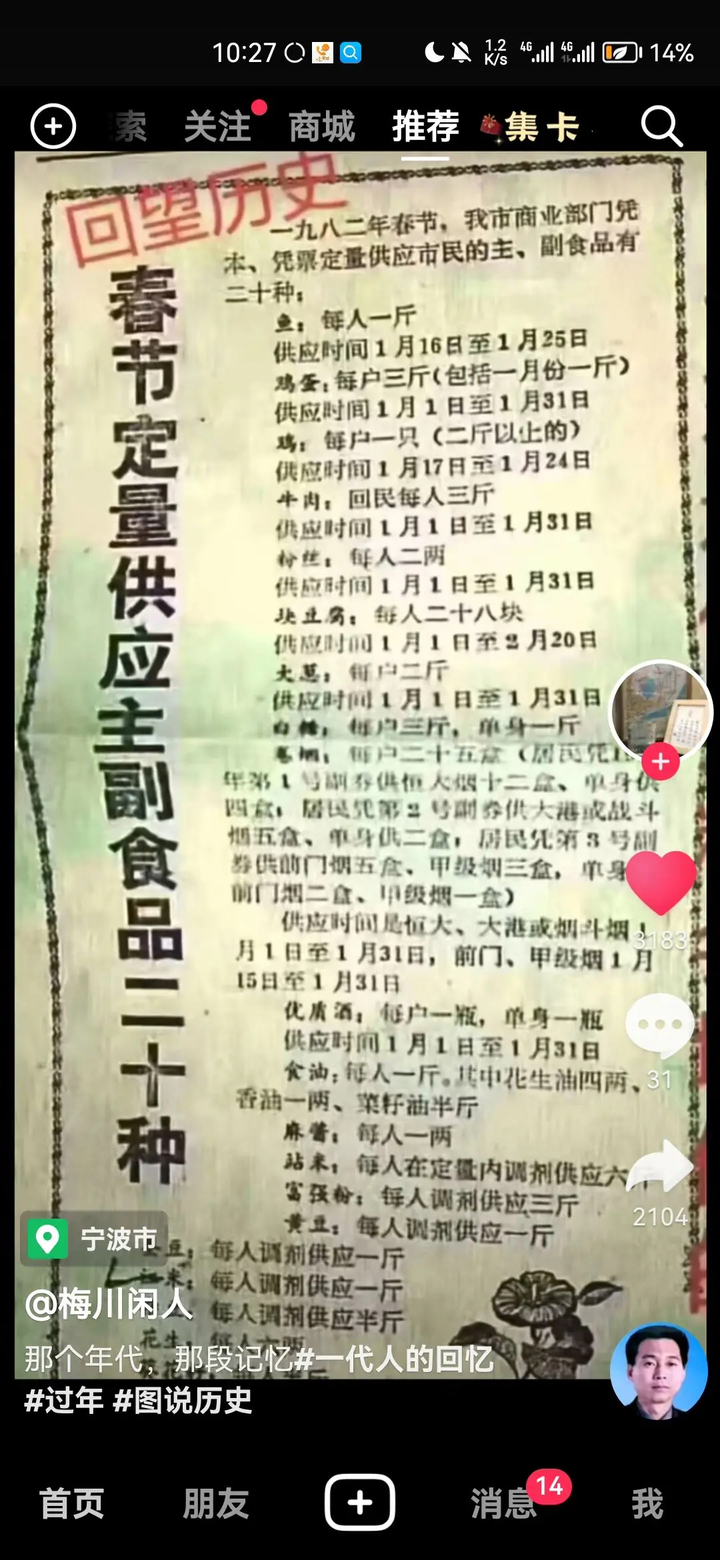 10:27
1.2
K/s
4G
4G
14%
索
关注
商城
推荐
集卡
回望历史
春节定量供应主副食品二十种
一九八二年春节，我市商业部门凭
本、凭票定量供应市民的主、副食品有
二十种：
鱼：每人一斤
供应时间1月16日至1月25日
鸡蛋：每户三斤（包括一月份一斤）
供应时间1月1日至1月31日
鸡：每户一只（二斤以上的）
供应时间1月17日至1月24日
牛肉：回民每人三斤
供应时间1月1日至1月31日
粉丝：每人二两
供应时间1月1日至1月31日
块豆腐：每人二十八块
供应时间1月1日至2月20日
大葱：每户二斤
供应时间1月1日至1月31日
白糖：每户三斤，单身一斤
卷烟：每户二十五盒（居民凭
年第1号副券供恒大烟十二盒、单身供
四盒；居民凭第2号副券供大港或战斗
烟五盒、单身供二盒；居民凭第3号副
券供前门烟五盒、甲级烟三盒，单身
前门烟二盒、甲级烟一盒）
供应时间是恒大、大港或烟斗烟1
月1日至1月31日，前门、甲级烟1月
15日至1月31日
优质酒：每户一瓶，单身一瓶
供应时间1月1日至1月31日
食油：每人一斤。其中花生油四两、
香油一两、菜籽油半斤
麻酱：每人一两
站米：每人在定量内调剂供应六斤
富强粉：每人调剂供应三斤
黄豆：每人调剂供应一斤
豆：每人调剂供应一斤
江米：每人调剂供应一斤
每人调剂供应半斤
花生：每人六两
3183
31
2104
宁波市
@梅川闲人
那个年代，那段记忆#一代人的回忆
#过年 #图说历史
首页
朋友
消息
14
我